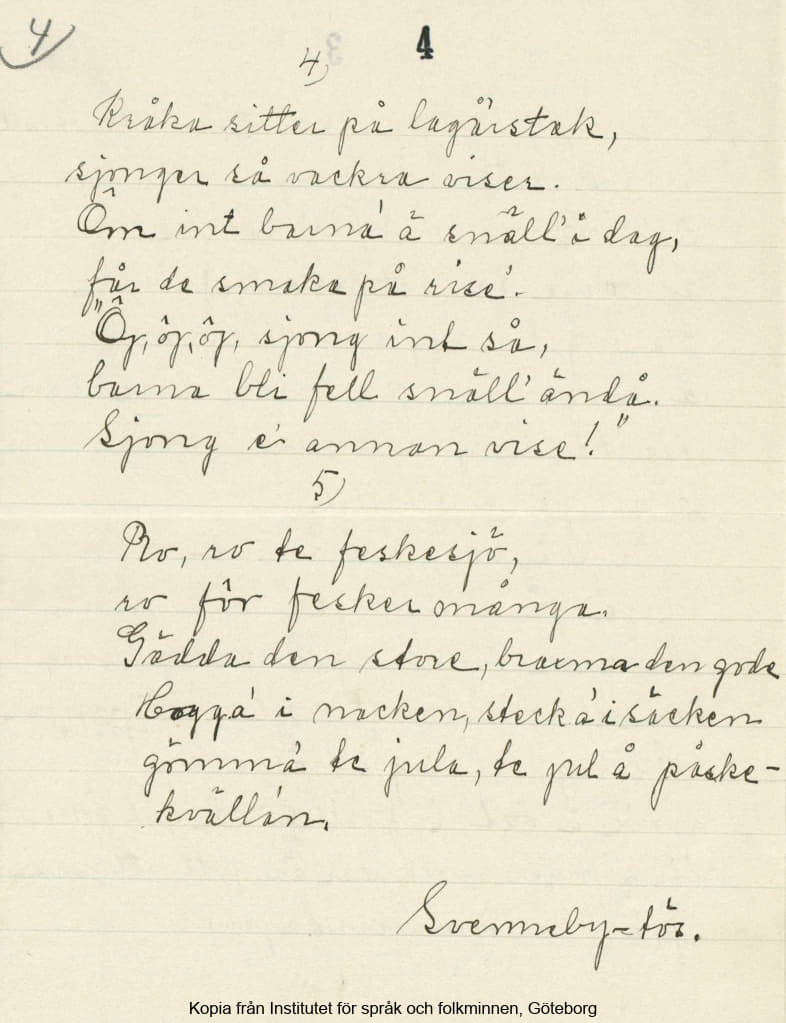 4
4
4)
Kråka sitter på lagårstak,
sjonger så vackra viser.
Öm int barna' ä snäll' i dag,
får de smaka på rise'.
"Öj, öj, öj, sjong int så,
barna bli fell snäll' ändå.
Sjong e' annan vise!"
5)
Ro, ro te feskesjö,
ro för fesker många.
Gädda den store, braxma den gode
Hogga' i nacken, stecka' i säcken
gömma' te jula, te jul å påske-
kvällan.
Svenneby-tös.
Kopia från Institutet för språk och folkminnen, Göteborg